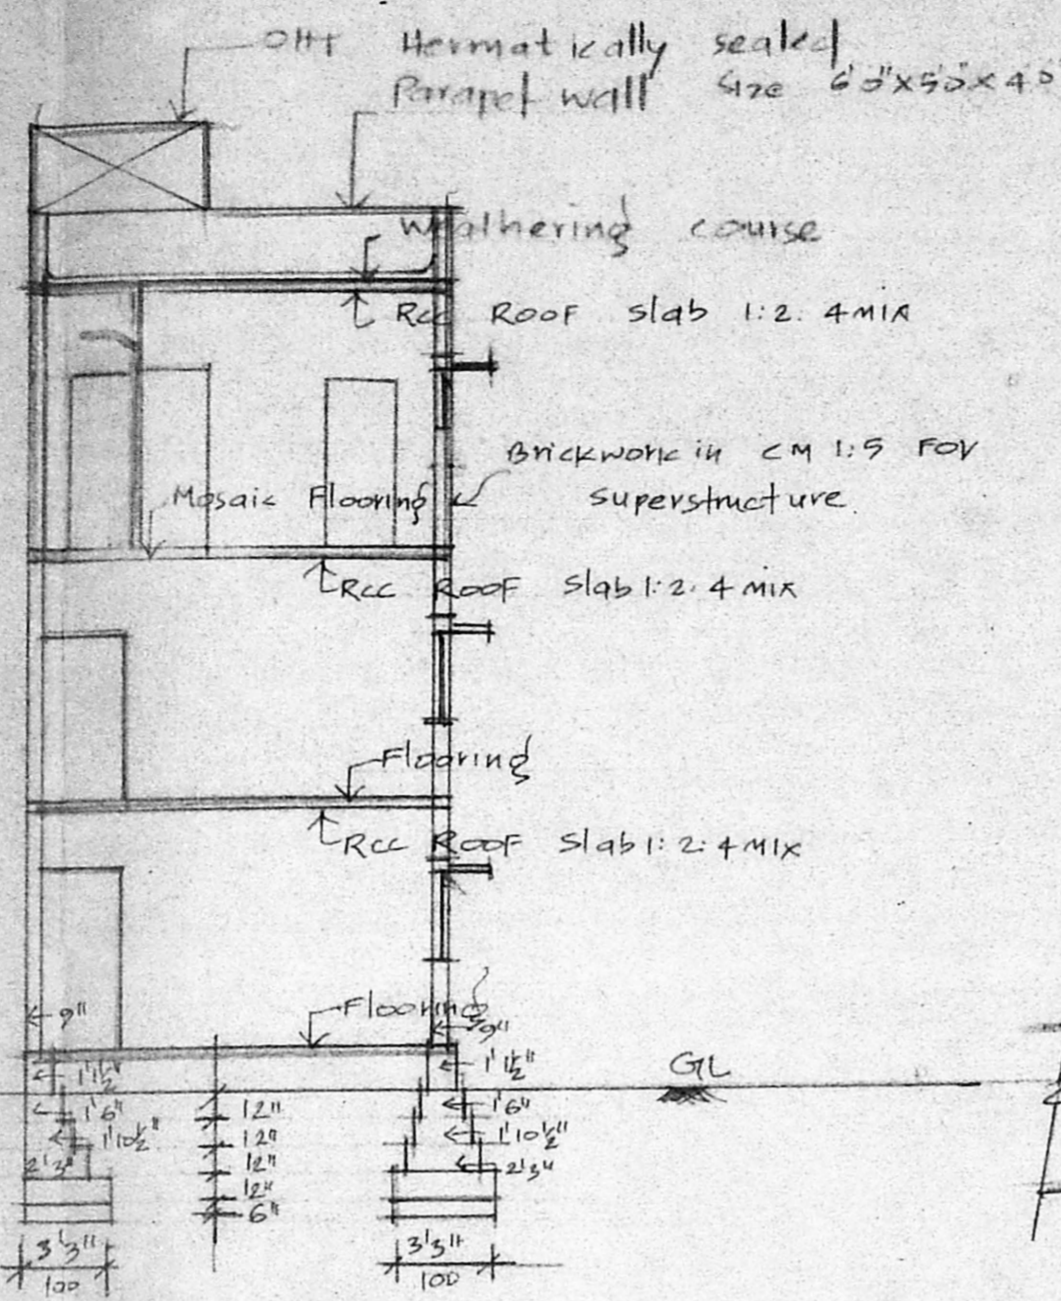 OHT Hermatically sealed
Size 6'0"X5'0"X4'0
Parapet wall
Weathering course
RCC ROOF Slab 1:2:4 MIX
Brickwork in CM 1:5 FOR
Superstructure
Mosaic Flooring
RCC ROOF Slab 1:2:4 MIX
Flooring
RCC ROOF Slab 1:2:4 MIX
Flooring
9" 9"
GL
1'1½" 1'1½"
1'6" 12" 1'6"
1'10½" 12" 1'10½"
2'3" 12" 2'3"
12"
6"
3'3" 3'3"
100 100